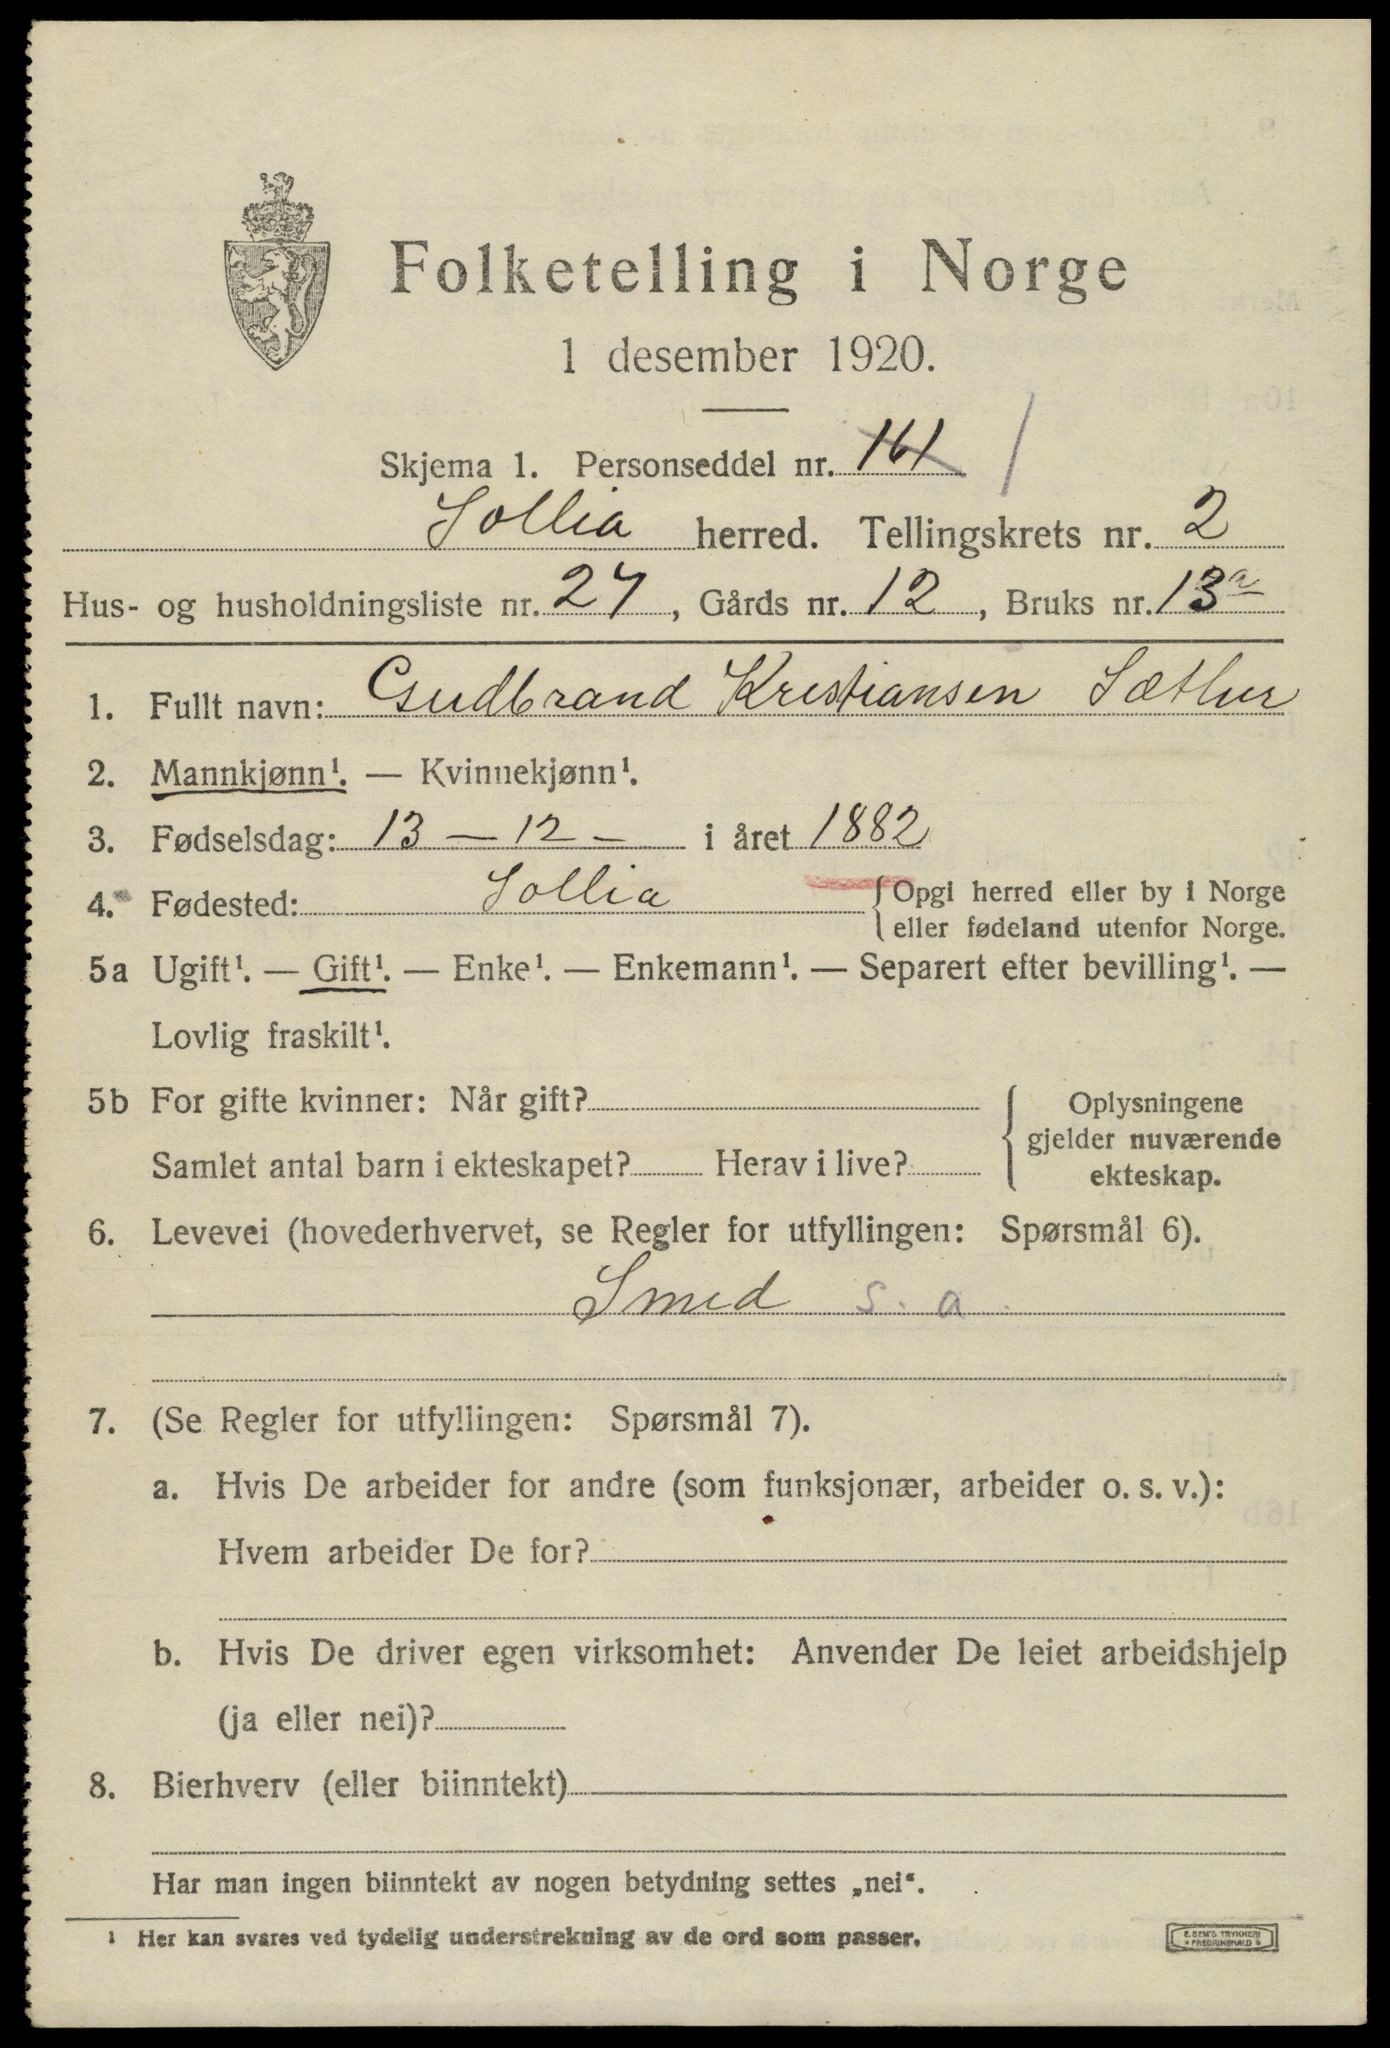 Folketelling i Norge
1 desember 1920.
Skjema 1. Personseddel nr. 161 /
Sollia herred. Tellingskrets nr. 2
Hus- og husholdningsliste nr. 27, Gårds nr. 12, Bruks nr. 13a
1. Fullt navn: Gudbrand Kristiansen Sæther
2. Mannkjønn¹. — Kvinnekjønn¹.
3. Fødselsdag: 13 — 12 — i året 1882
4. Fødested: Sollia { Opgi herred eller by i Norge
eller fødeland utenfor Norge.
5a Ugift¹. — Gift¹. — Enke¹. — Enkemann¹. — Separert efter bevilling¹. —
Lovlig fraskilt¹.
5b For gifte kvinner: Når gift? Oplysningene
gjelder nuværende
Samlet antal barn i ekteskapet? Herav i live? ekteskap.
6. Levevei (hovederhvervet, se Regler for utfyllingen: Spørsmål 6).
Smed s. a.
7. (Se Regler for utfyllingen: Spørsmål 7).
a. Hvis De arbeider for andre (som funksjonær, arbeider o. s. v.):
Hvem arbeider De for?
b. Hvis De driver egen virksomhet: Anvender De leiet arbeidshjelp
(ja eller nei)?
8. Bierhverv (eller biinntekt)
Har man ingen biinntekt av nogen betydning settes „nei“.
¹ Her kan svares ved tydelig understrekning av de ord som passer.
E. SEM'S TRYKKERI
FREDRIKSHALD